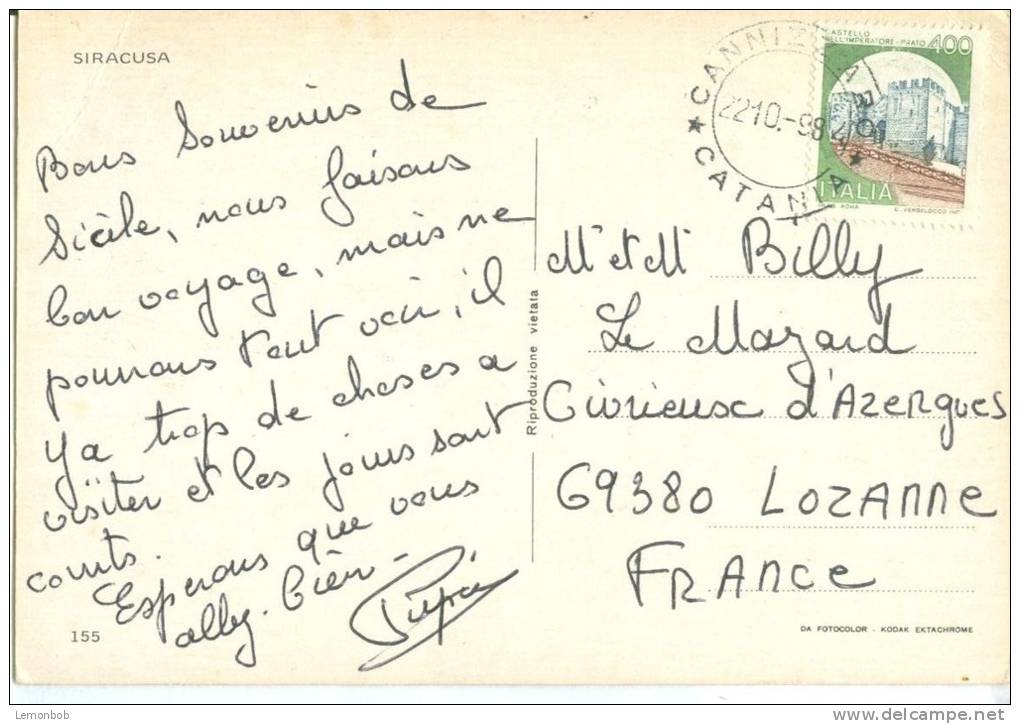 SIRACUSA
Bons Souvenirs de
Sicile, nous faisons
bon voyage, mais ne
pouvons tout voir, il
ya trop de choses a
visiter et les jours sont
courts.
Esperons que vous
allez bien
CASTELLO
DELL'IMPERATORE - PRATO 400
ITALIA
CANNIZZARO
* CATANIA *
2210.-98
Mr et Mr Billy
Le Mazard
Civrieux d'Azergues
69380 LOZANNE
FRANCE
Riproduzione vietata
155
DA FOTOCOLOR - KODAK EKTACHROME
Lemonbob
www.delcampe.net